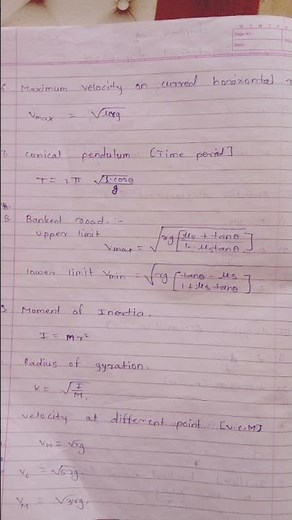 6. Maximum velocity on curved horizontal
Vmax = √μrg
7. Conical pendulum [Time period]
T = 2π √l·cosθ/g
8. Banked road :-
upper limit
Vmax = √rg[μs + tanθ / 1 - μs tanθ]
lower limit Vmin = √rg[tanθ - μs / 1 + μs tanθ]
9. Moment of Inertia.
I = mr²
Radius of gyration.
K = √I/M.
velocity at different point [V.C.M]
VH = √rg
VL = √5rg.
VM = √3rg.